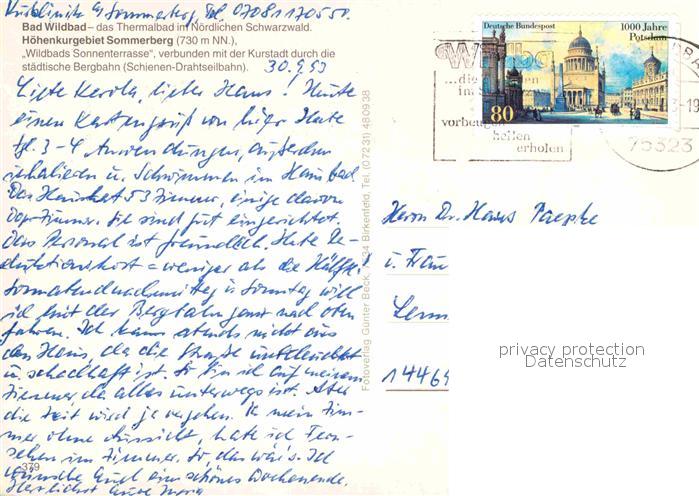 Kurklinik a/ Sommerberg, Tel. 07081 170550
Bad Wildbad – das Thermalbad im Nördlichen Schwarzwald.
Höhenkurgebiet Sommerberg (730 m NN.),
„Wildbads Sonnenterrasse", verbunden mit der Kurstadt durch die
städtische Bergbahn (Schienen-Drahtseilbahn).
30.9.93
Liebe Kerola, lieber Hans! Heute
einen Kartengruß von hier. Habe
tgl. 3-4 Anwendungen, außerdem
inhalieren u. Schwimmen im Hausbad.
Das Haus hat 53 Zimmer, einige davon
Dopp.zimmer. Sie sind gut eingerichtet.
Das Personal ist freundlich. Habe Re-
duktionskost = weniger als die Hälfte!
Sonnabendnachmittag u. Sonntag will
ich mit der Bergbahn ganz nach oben
fahren. Ich kann abends nicht aus
dem Haus, da die Straße unbeleuchtet
u. schadhaft ist. So bin ich auf meinem
Zimmer, da alles unterwegs ist. Aber
die Zeit wird ja vergehen. In mein Zim-
mer ohne Aussicht, habe ich Fern-
sehen im Zimmer. So, das wär's. Ich
wünsche Euch ein schönes Wochenende.
Herzlichst Eure
379
Fotoverlag Günter Beck, 7534 Birkenfeld, Tel. (07231) 480938
Deutsche Bundespost
1000 Jahre
Potsdam
80
Wildba
...die
im S
vorbeugen
heilen
erholen
75323
Herrn Dr. Hans Paepke
u. Frau
14469
privacy protection
Datenschutz